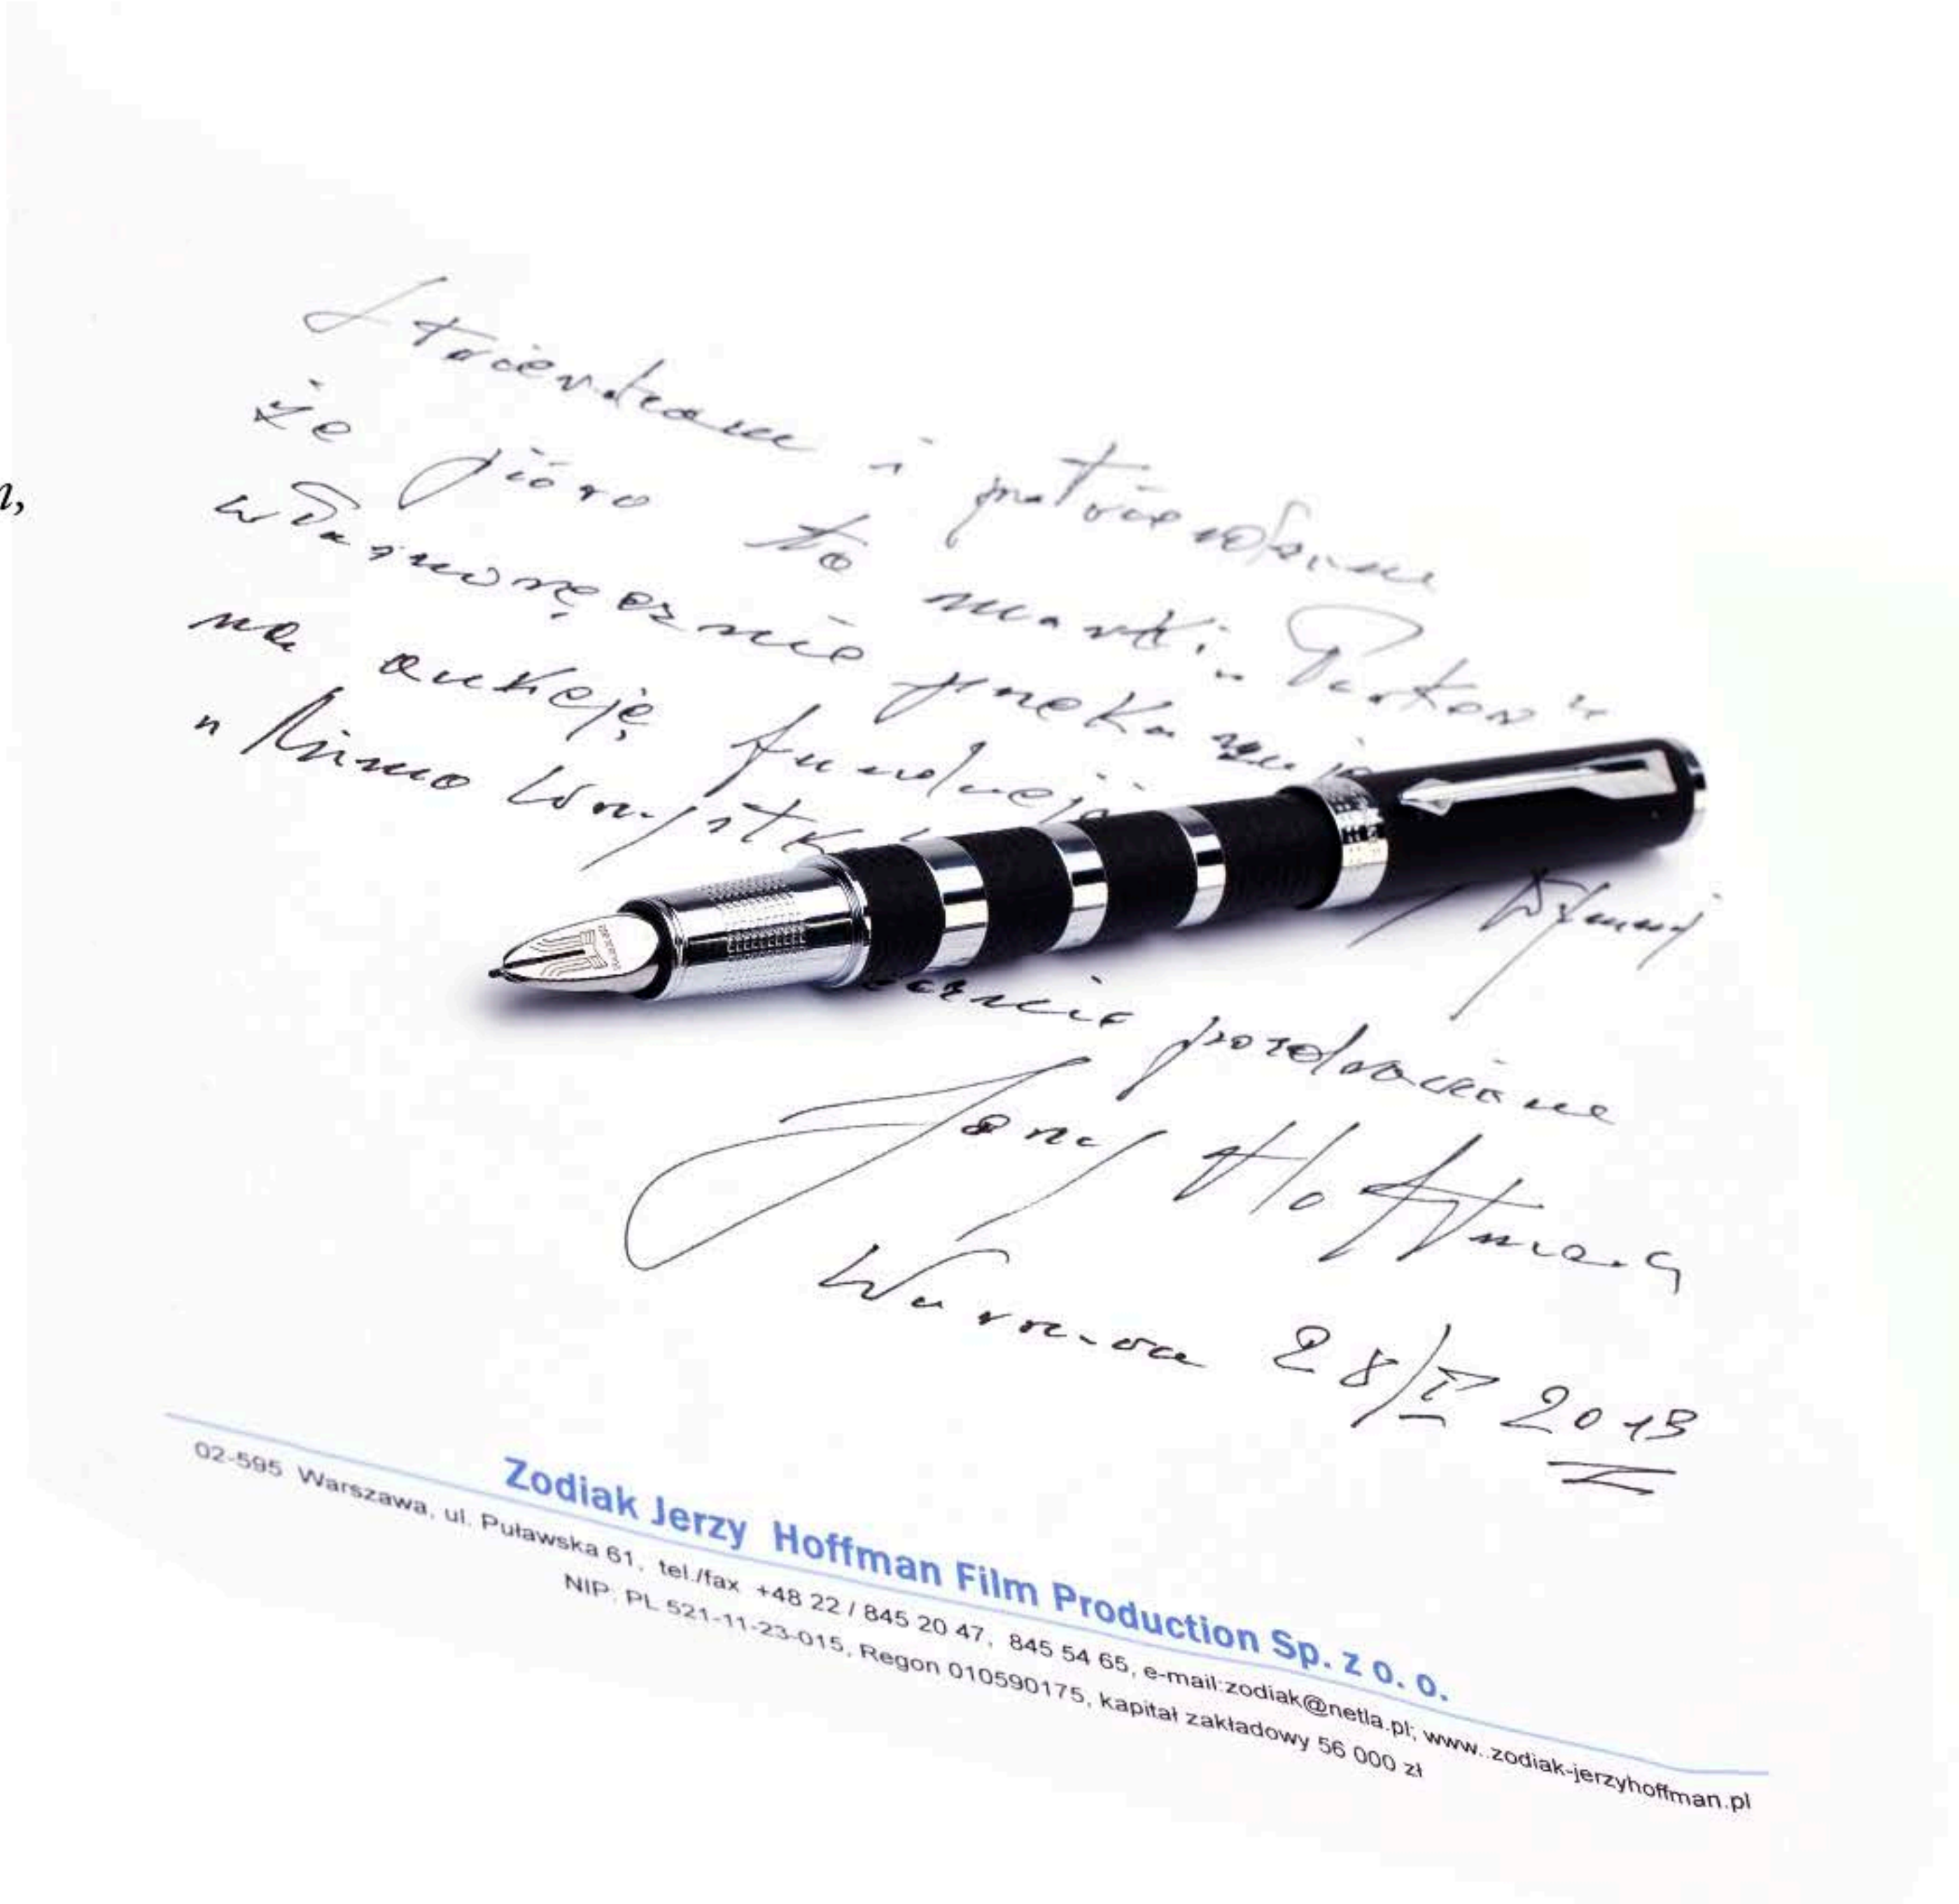 Stwierdzam i potwierdzam
że pióro to marki "Parker"
własnoręcznie przekazuję
na aukcję fundacji
"Mimo
pozdrowienia
Jerzy Hoffman
Warszawa 28/I 2013
Zodiak Jerzy Hoffman Film Production Sp. z o. o.
02-595 Warszawa, ul. Puławska 61, tel./fax +48 22 / 845 20 47, 845 54 65, e-mail:zodiak@netla.pl; www..zodiak-jerzyhoffman.pl
NIP. PL 521-11-23-015, Regon 010590175, kapitał zakładowy 56 000 zł